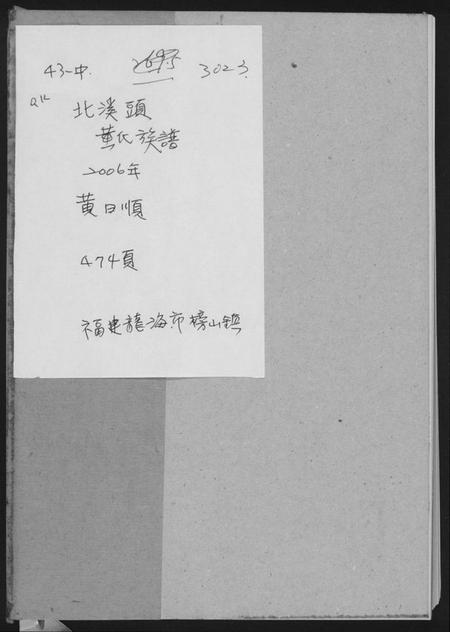 43-中. 3023.
北溪頭
黃氏族譜
2006年
黃日順
474頁
福建龍海市榜山鎮